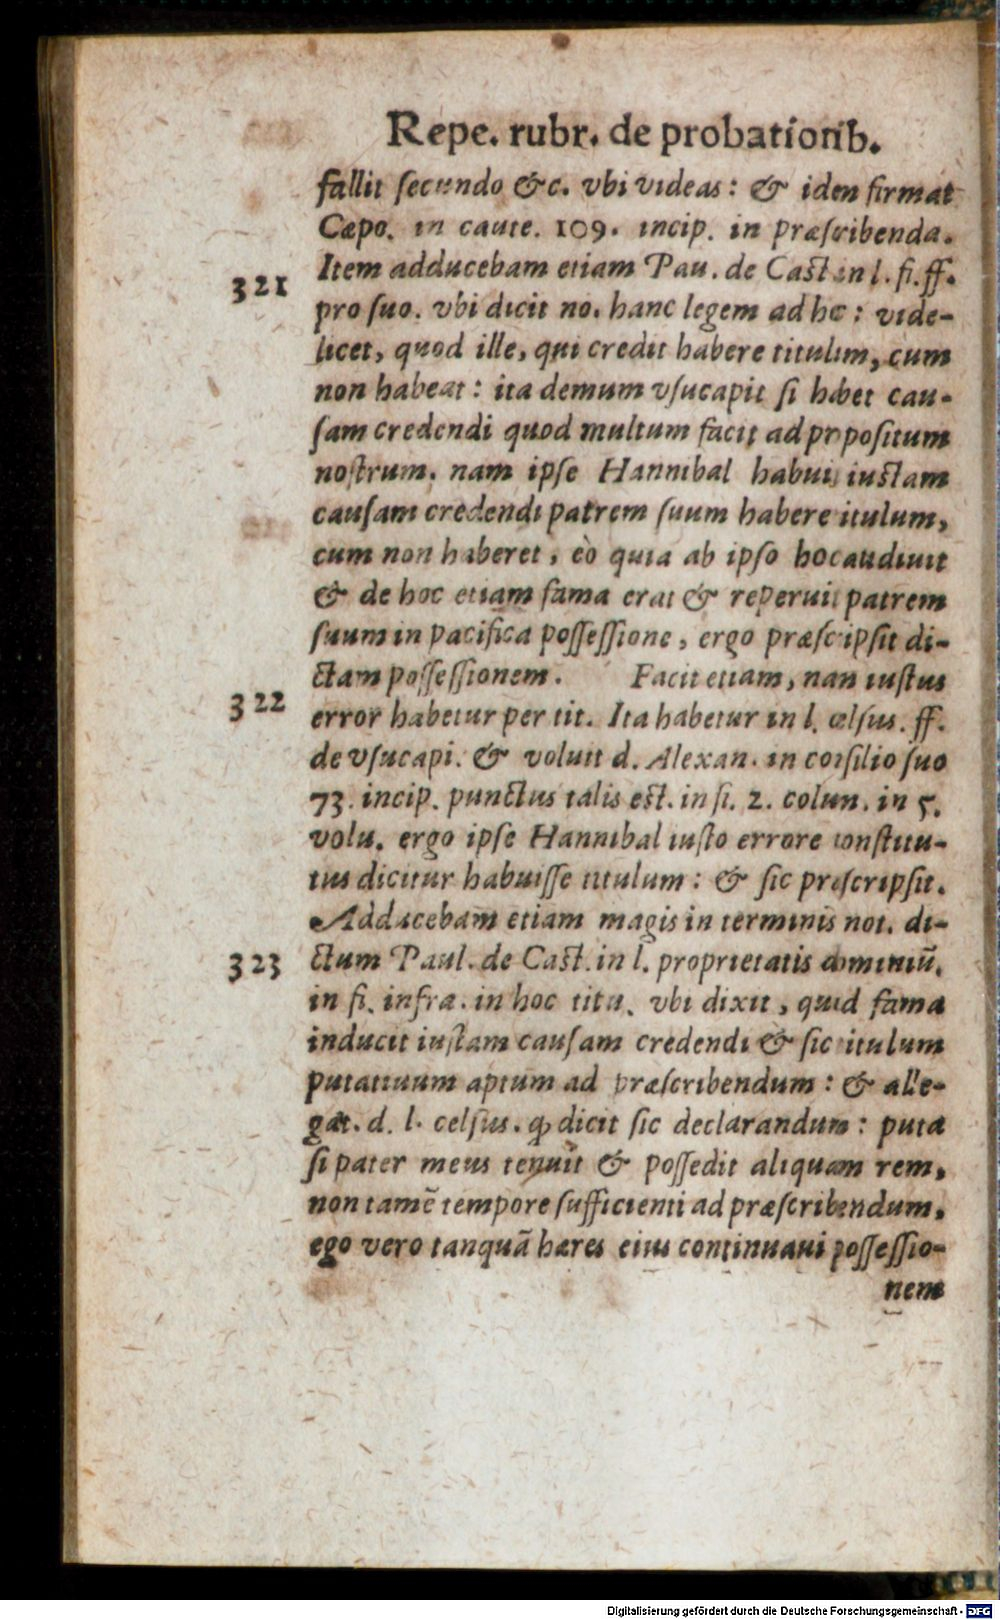 Repe. rubr. de probationib.
fallit secundo &c. vbi videas: & idem firmat
Cæpo. in caute. 109. incip. in præscribenda.
321 Item adducebam etiam Pau. de Cast in l. fi. ff.
pro suo. vbi dicit no. hanc legem ad hæ: vide-
licet, quod ille, qui credit habere titulum, cum
non habeat: ita demum vsucapit si habet cau-
sam credendi quod multum facit ad propositum
nostrum. nam ipse Hannibal habuit iustam
causam credendi patrem suum habere titulum,
cum non haberet, eò quia ab ipso hoc audiuit
& de hoc etiam fama erat & reperuit patrem
suum in pacifica possessione, ergo præscripsit di-
ctam possessionem. Facit etiam, nam iustus
322 error habetur per tit. Ita habetur in l. celsus. ff.
de vsucapi. & voluit d. Alexan. in consilio suo
73. incip. punctus talis est. in fi. 2. colum. in 5.
volu. ergo ipse Hannibal iusto errore constitu-
tus dicitur habuisse titulum: & sic præscripsit.
Adducebam etiam magis in terminis not. di-
323 ctum Paul. de Cast. in l. proprietatis dominiū.
in fi. infra. in hoc titu. vbi dixit, quod fama
inducit iustam causam credendi & sic titulum
putatiuum aptum ad præscribendum: & alle-
gat. d. l. celsus. ꝙ dicit sic declarandum: puta
si pater meus tenuit & possedit aliquam rem,
non tamē tempore sufficienti ad præscribendum,
ego vero tanquā hæres eius continuaui possessio-
nem
Digitalisierung gefördert durch die Deutsche Forschungsgemeinschaft - DFG